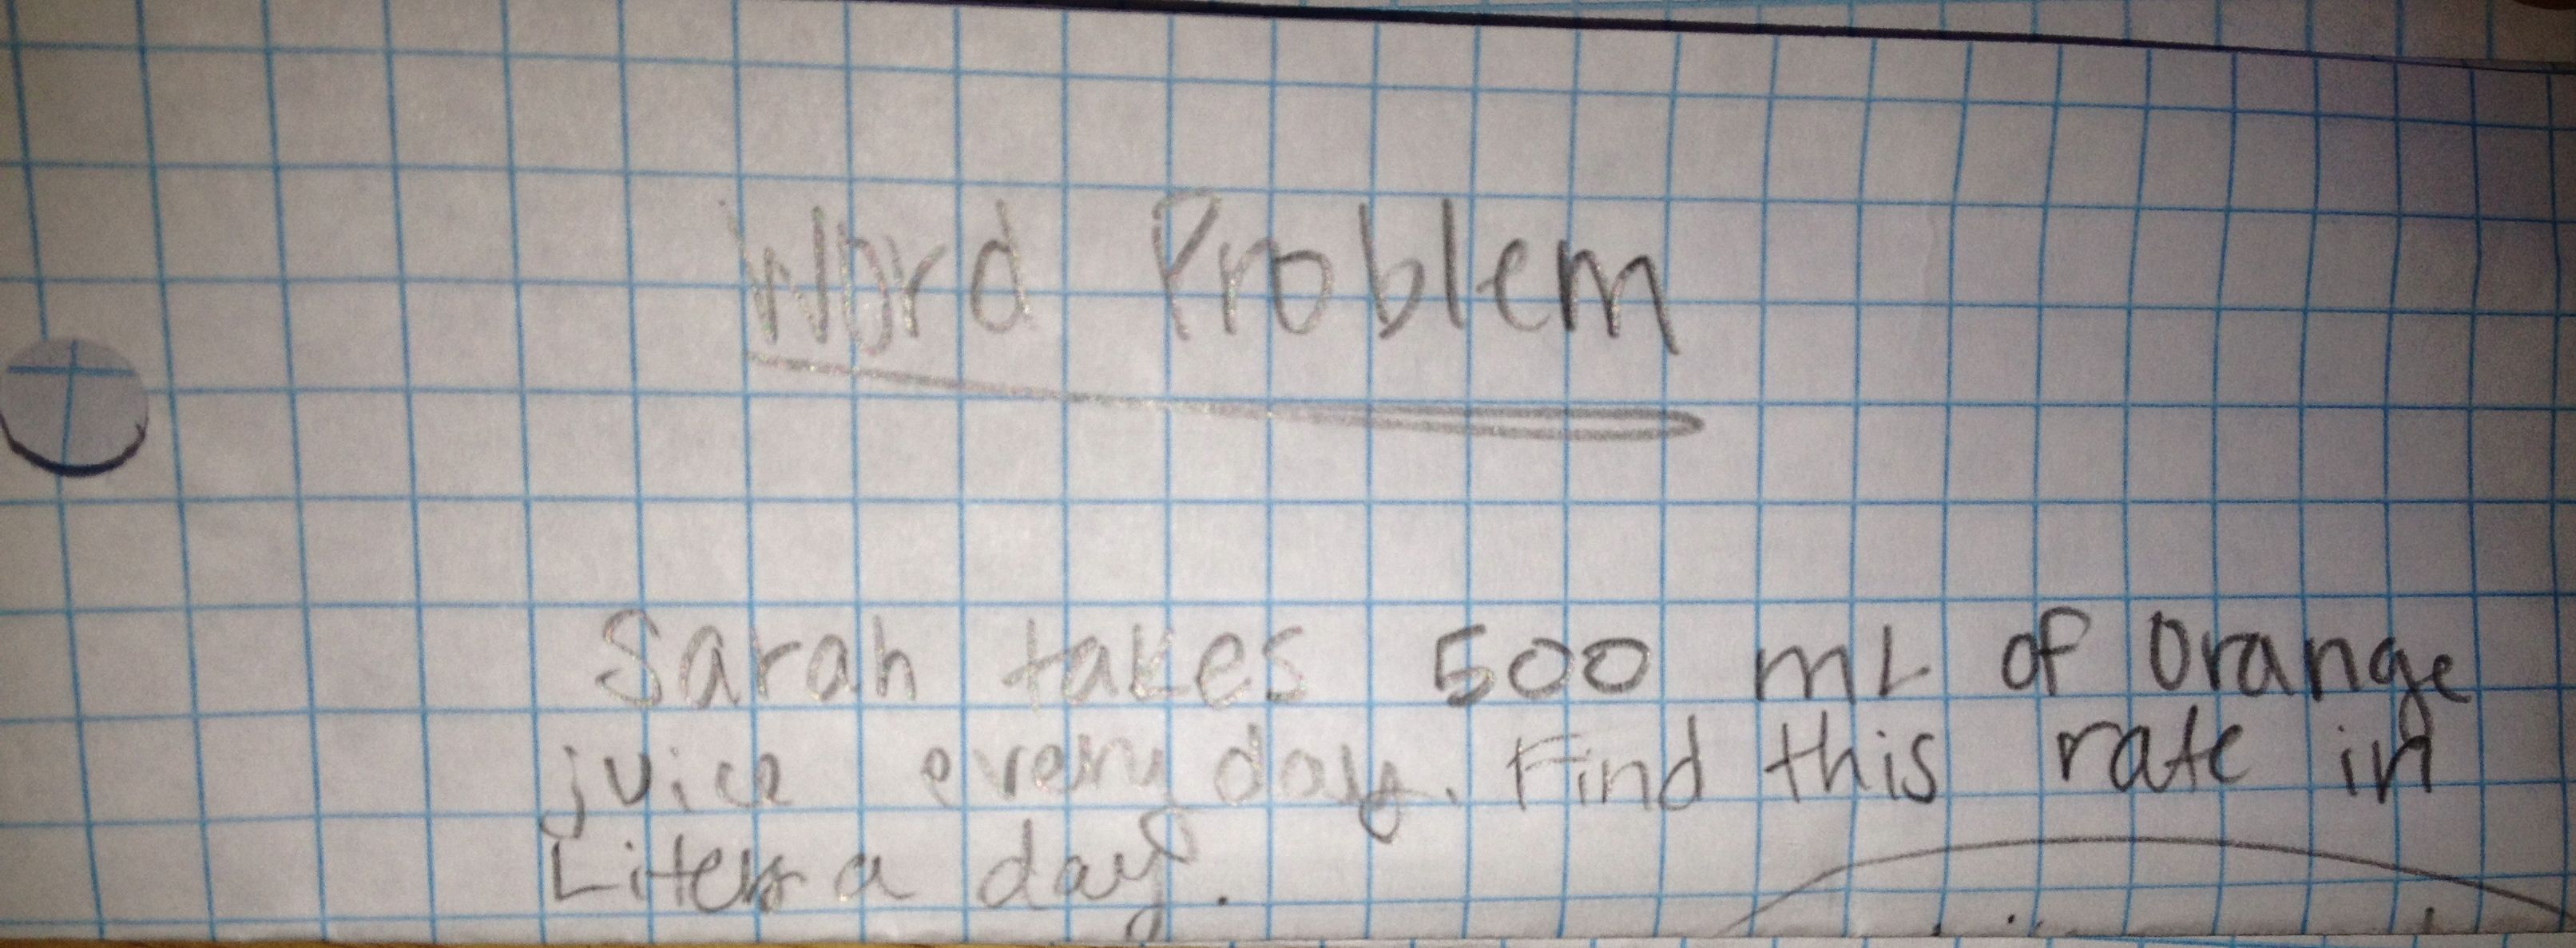 Word Problem
Sarah takes 500 mL of orange
juice every day. Find this rate in
Liters a day.